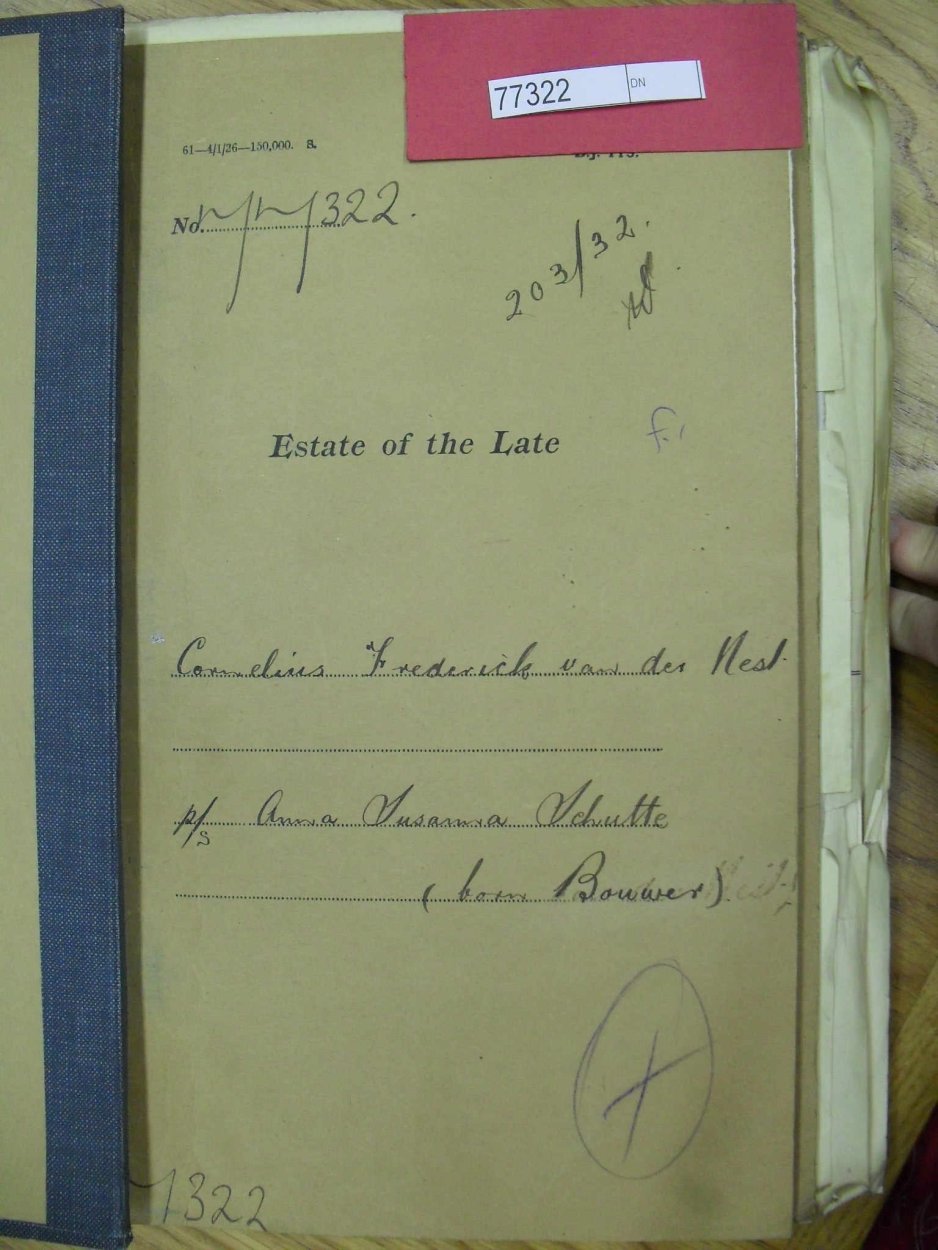 77322 DN
61—4/1/26—150,000. S.
No. 77322.
203/32.
f.
Estate of the Late
Cornelius Frederick van der Nest.
p/s Anna Susanna Schutte
(born Bouwer)
7322